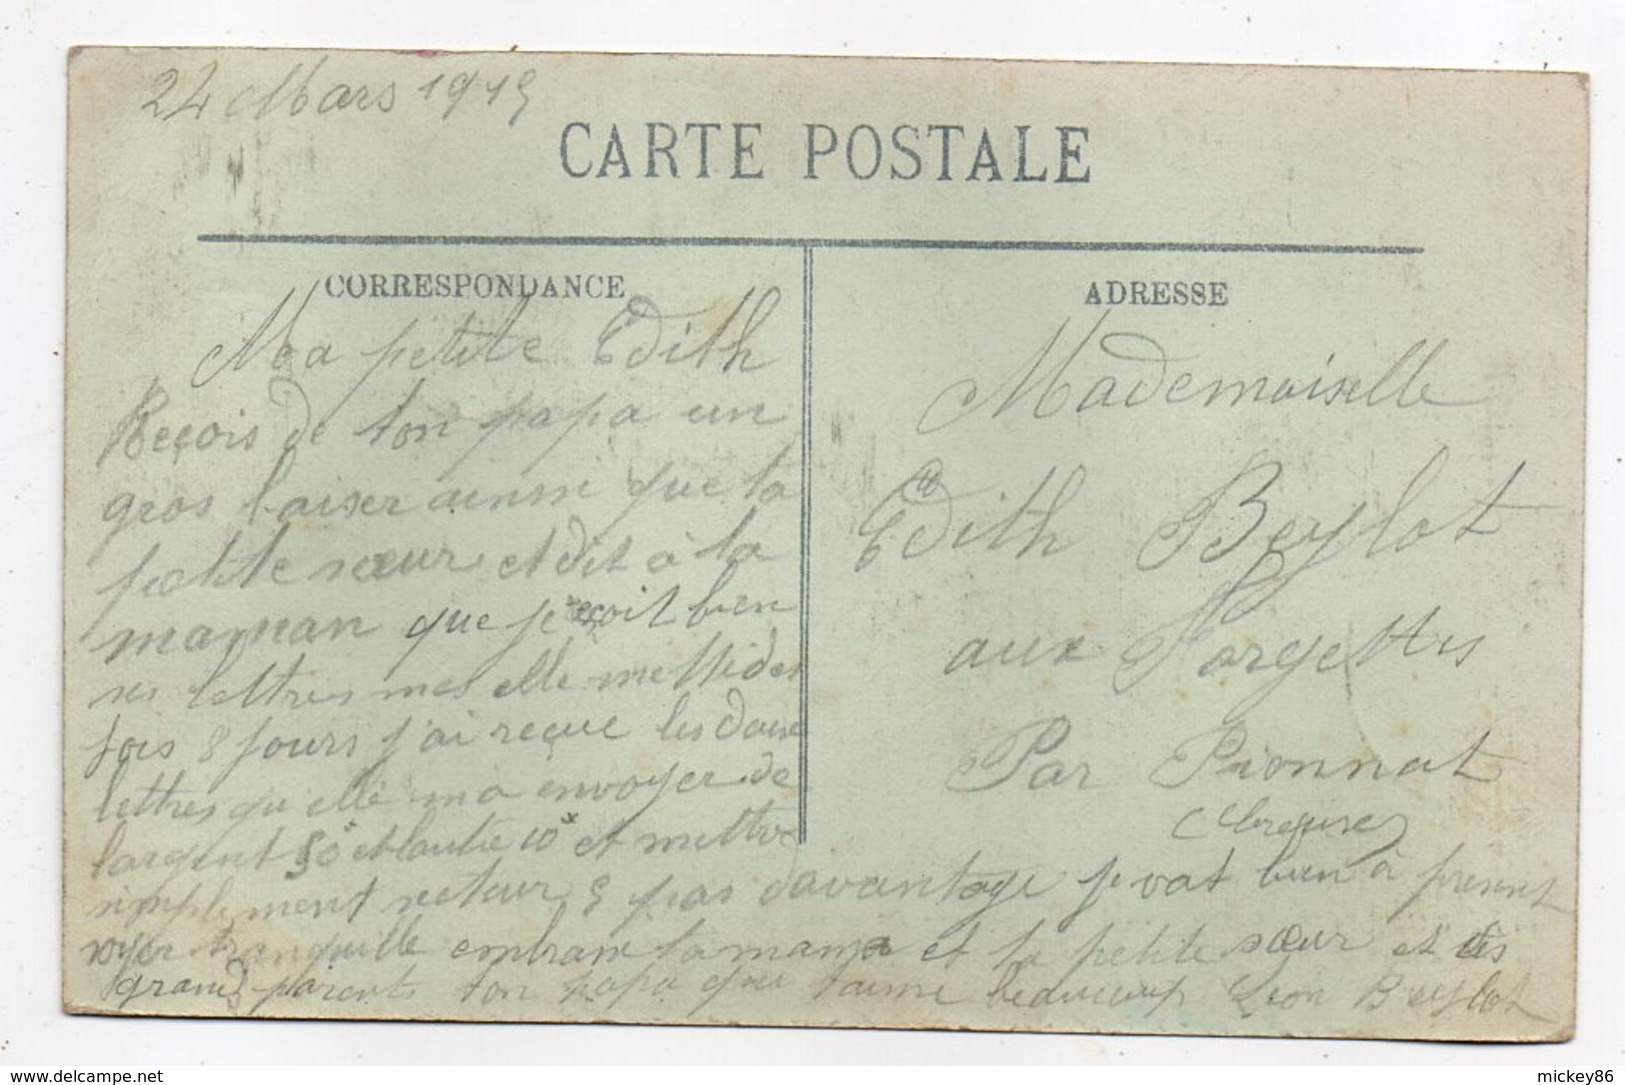 24 Mars 1915
CARTE POSTALE
CORRESPONDANCE
Ma petite Edith
Reçois de ton papa un
gros baiser ainssi que ta
petite sœur et dit à ta
maman que je reçoit bien
ses lettres mes elle mettide
fois 8 jours j'ai reçue les deux
lettres qu'elle ma envoyer de
largent 50 et lautre 10 et mettre
simplement secteur 5 pas davantage je vat bien à present
soyer tranquille embrasse ta maman et ta petite sœur et tes
grands parents ton papa qui taime beaucoup Leon Beylot
ADRESSE
Mademoiselle
Edith Beylot
aux Forgettes
Par Pionnat
(Creuse)
mickey86